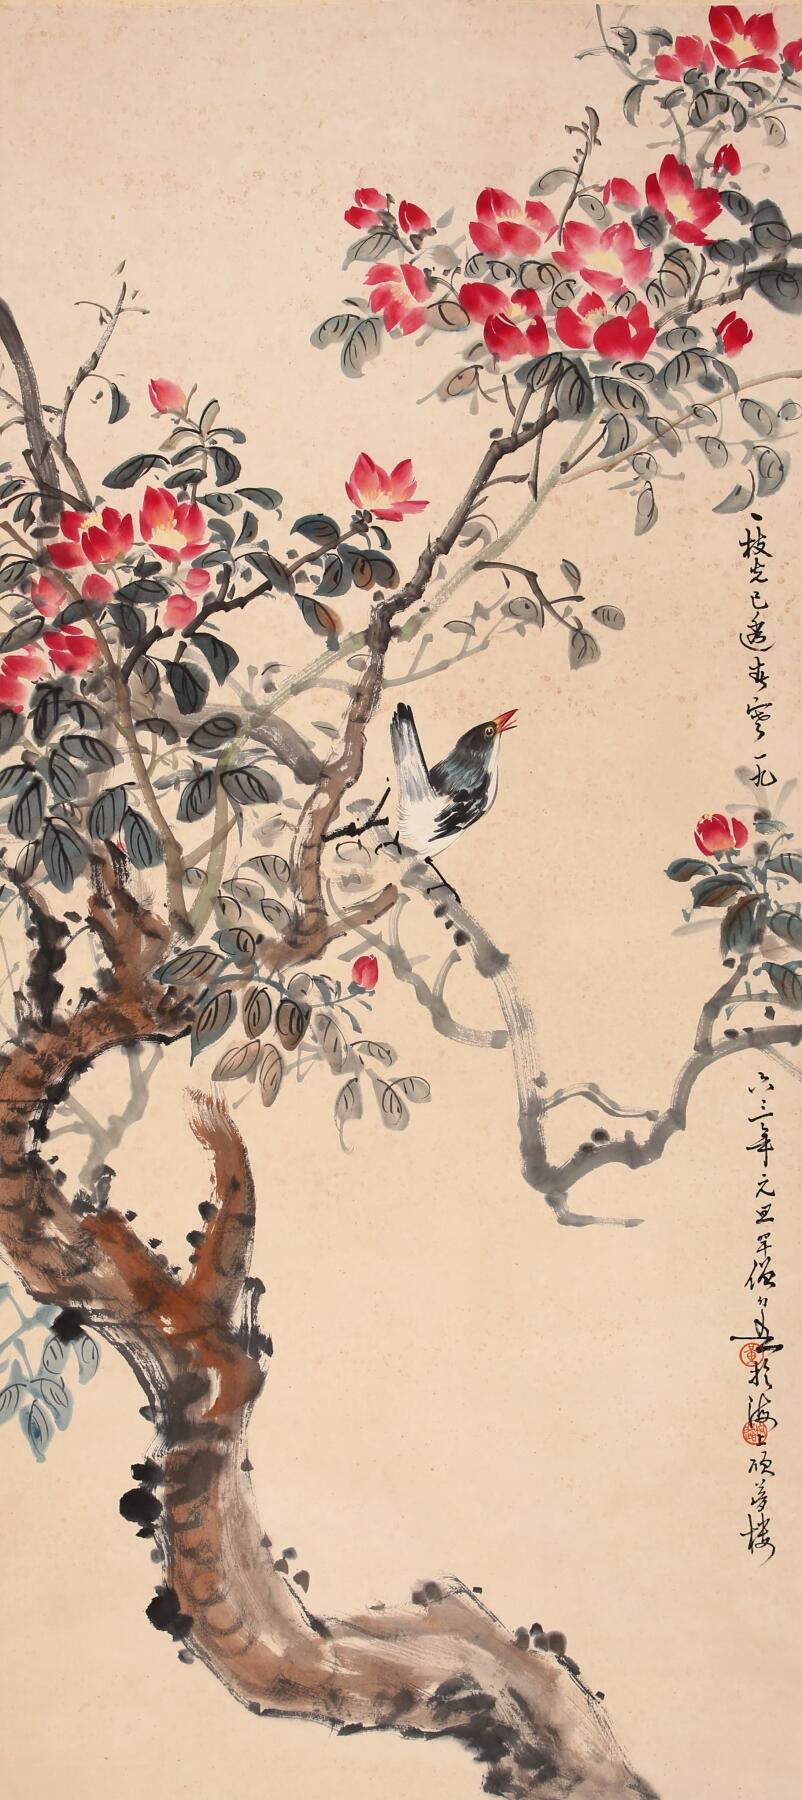 一枝先已透春寒一九
六三年元旦罕僧写于海上硕梦楼